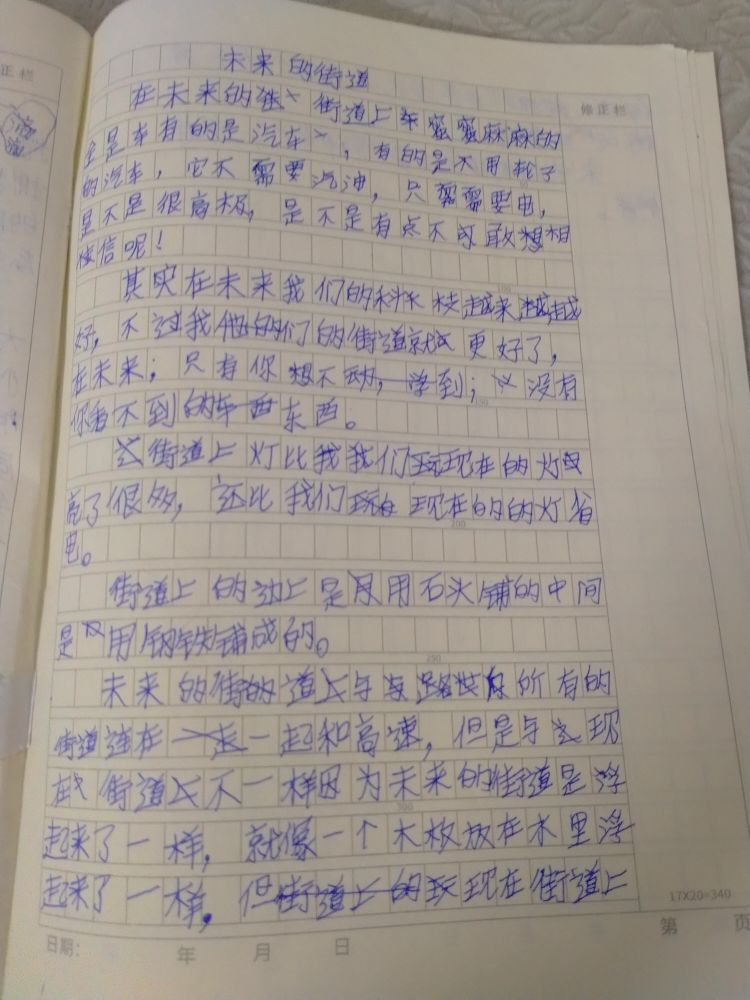 正栏
未来的街道
修正栏
在未来的街道上车蜜蜜麻麻的
全是车有的是汽车,有的是不用轮子
的汽车,它不需要汽油,只需要电,
是不是很高极,是不是有点不可敢想相
信呢!
其实在未来我们的科技越来越
好,不过我们的街道就更好了,
在未来;只有你想不到;没有
你看不到东西。
街道上灯比我们现在的灯
亮了很多,还比我们现在的灯省
电。
街道上的边上是用石头铺的中间
是用钢铁铺成的。
未来的街道与所有的
街道连在一起和高速,但是与现
在街道不一样因为未来的街道是浮
起来了一样,就像一个木板放在水里浮
起来了一样,但现在街道上
100
150
200
250
300
17X20=340
日期: 年 月 日
第 页